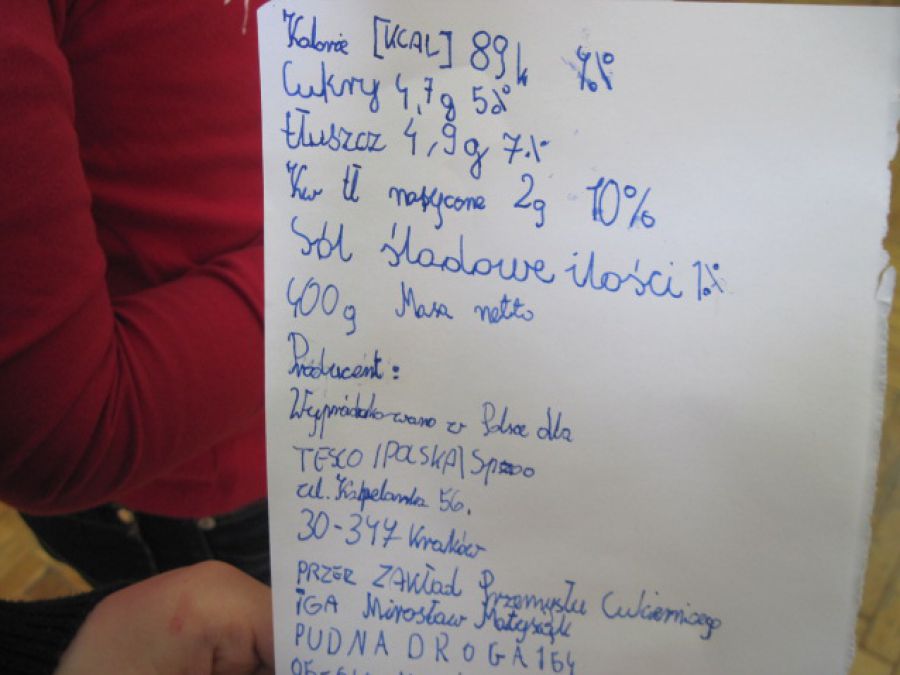 Kalorie [KCAL] 89k 4%
Cukry 4,7g 5%
tłuszcz 4,9g 7%
Kw tł nasycone 2g 10%
Sól śladowe ilości 1%
400g Masa netto
Producent:
Wyprodukowano w Polsce dla
TESCO /POLSKA\
ul. Kapelanka 56.
30-347 Kraków
PRZEZ ZAKŁAd Przemysłu Cukierniczego
IGA Mirosław Matysiak
PUDNA DROGA 164